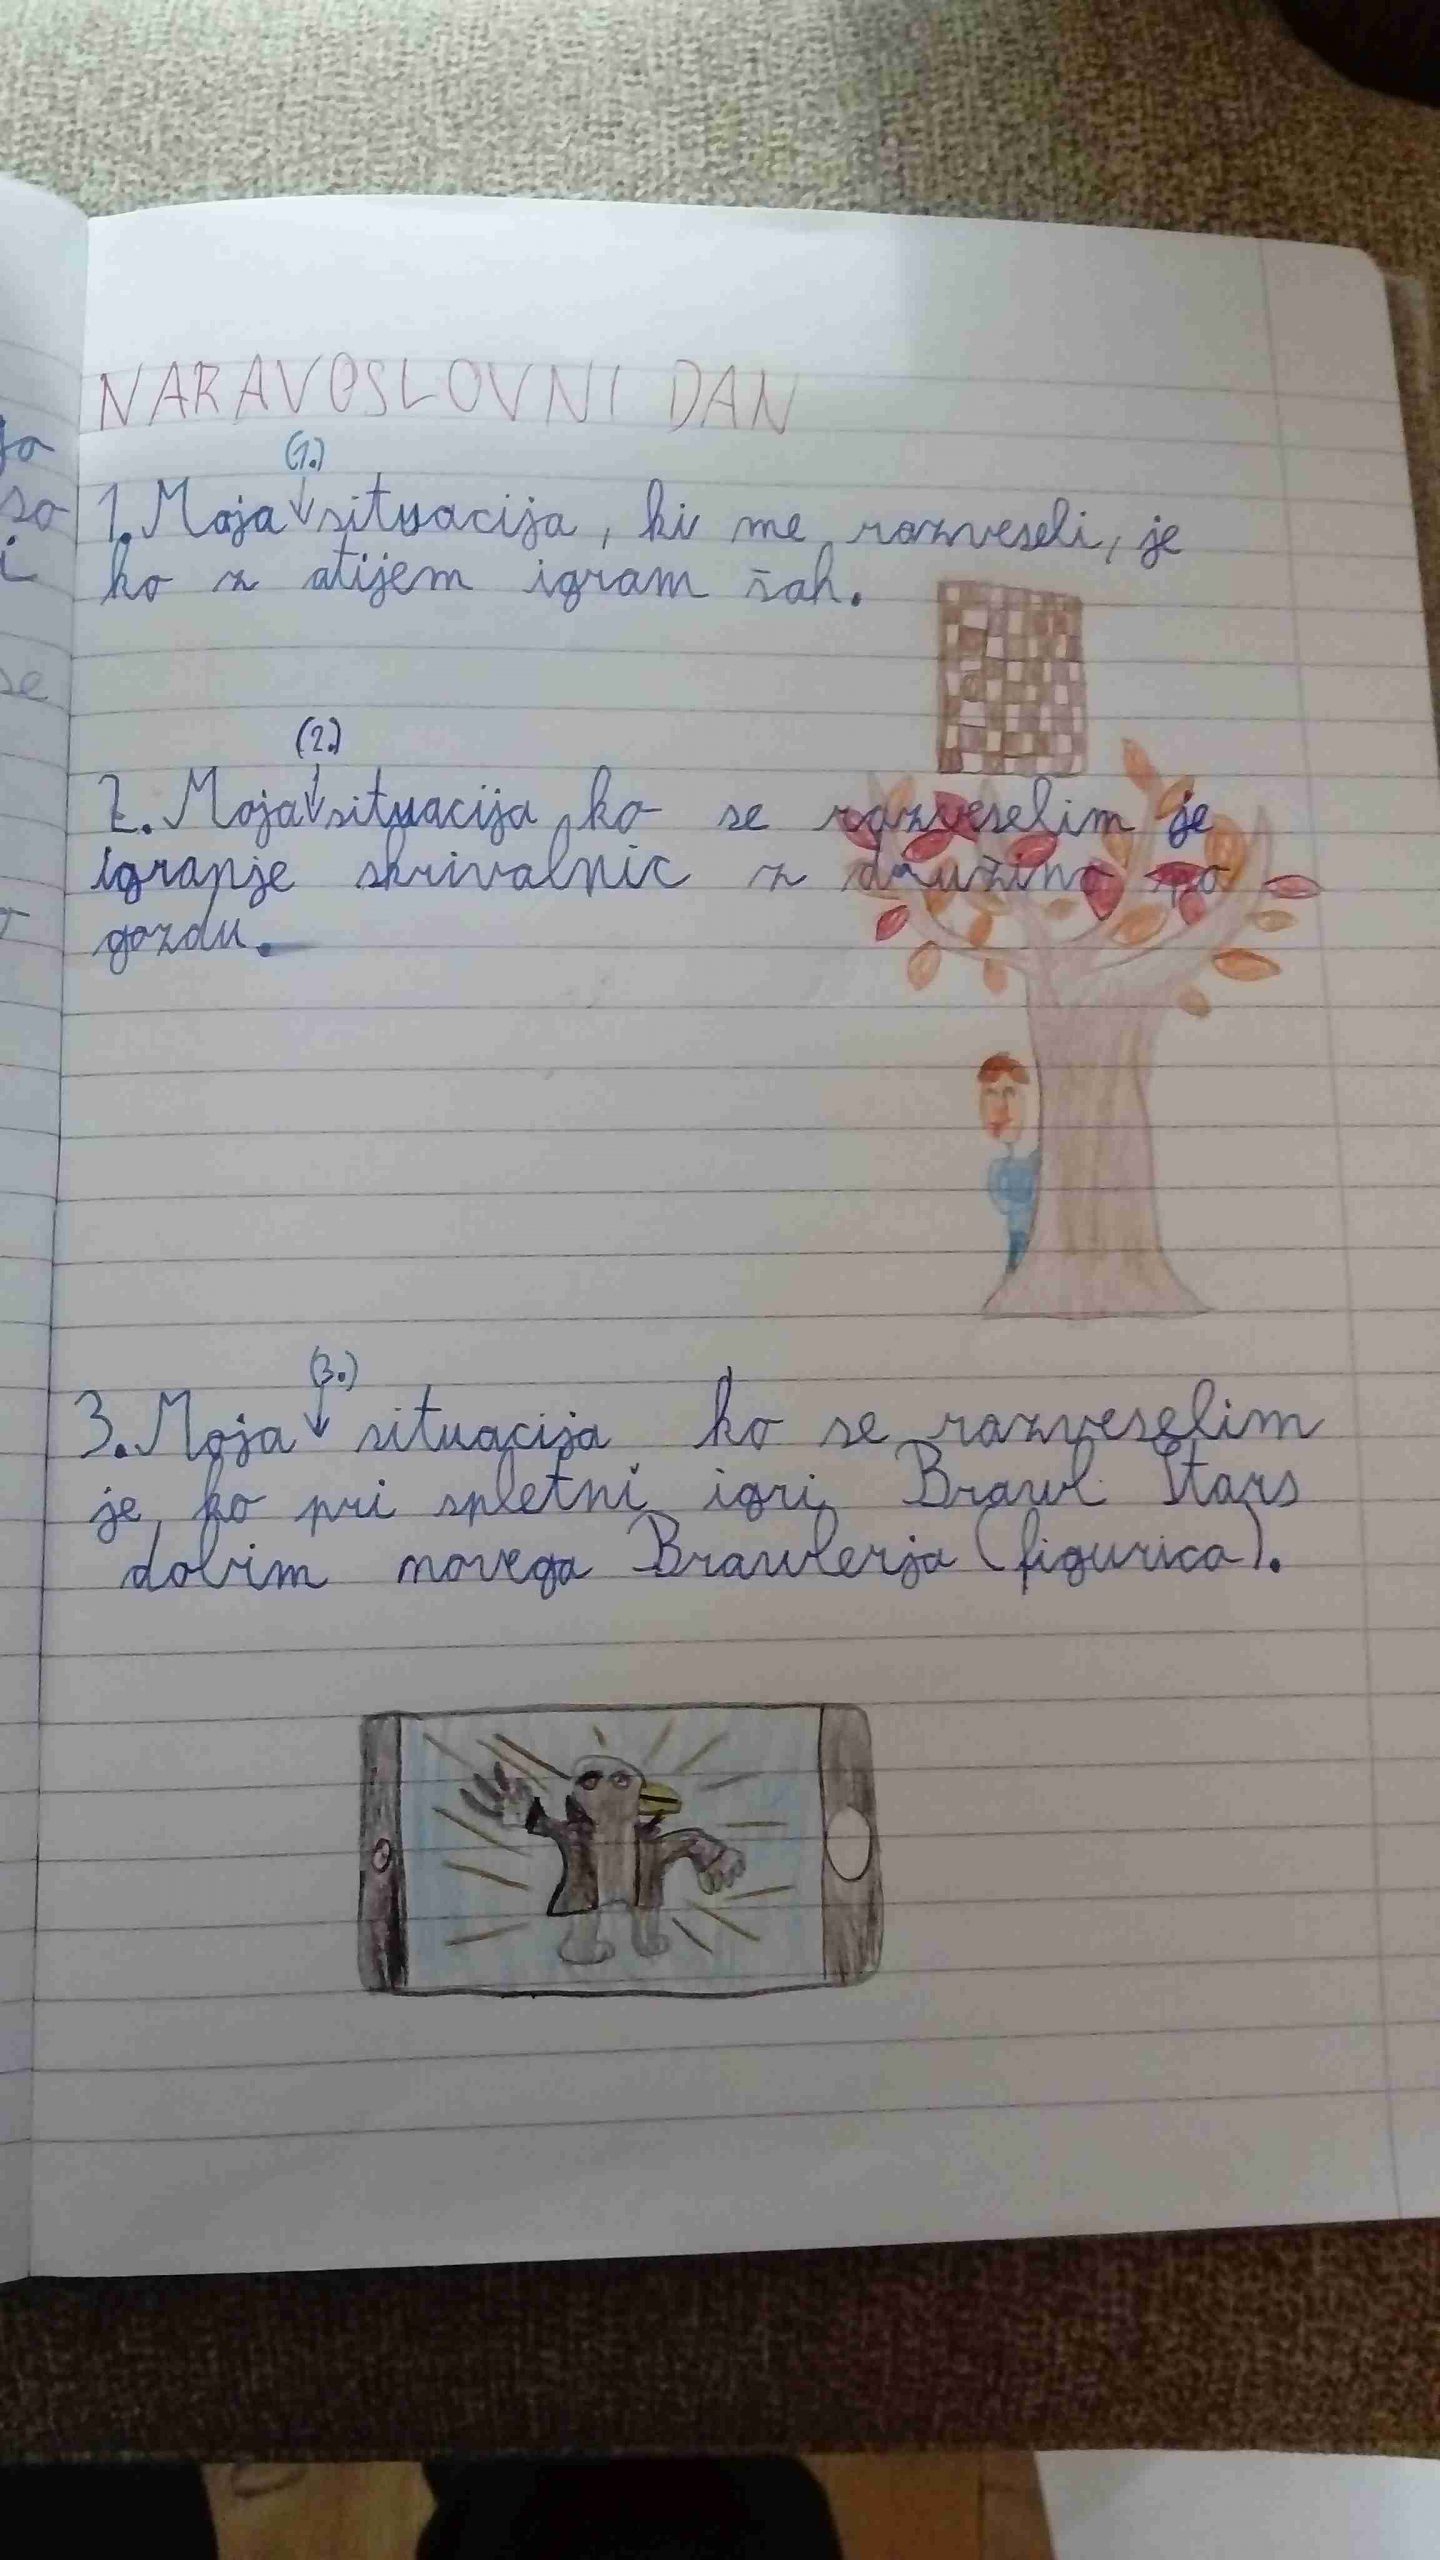 NARAVOSLOVNI DAN
(1.)
1. Moja ↓ situacija, ki me razveseli, je
ko z atijem igram šah.
(2.)
2. Moja ↓ situacija ko se razveselim je
igranje skrivalnic z družino po
gozdu.
(3.)
3. Moja ↓ situacija ko se razveselim
je, ko pri spletni igri Brawl Stars
dobim novega Brawlerja (figurica).
so
i
se